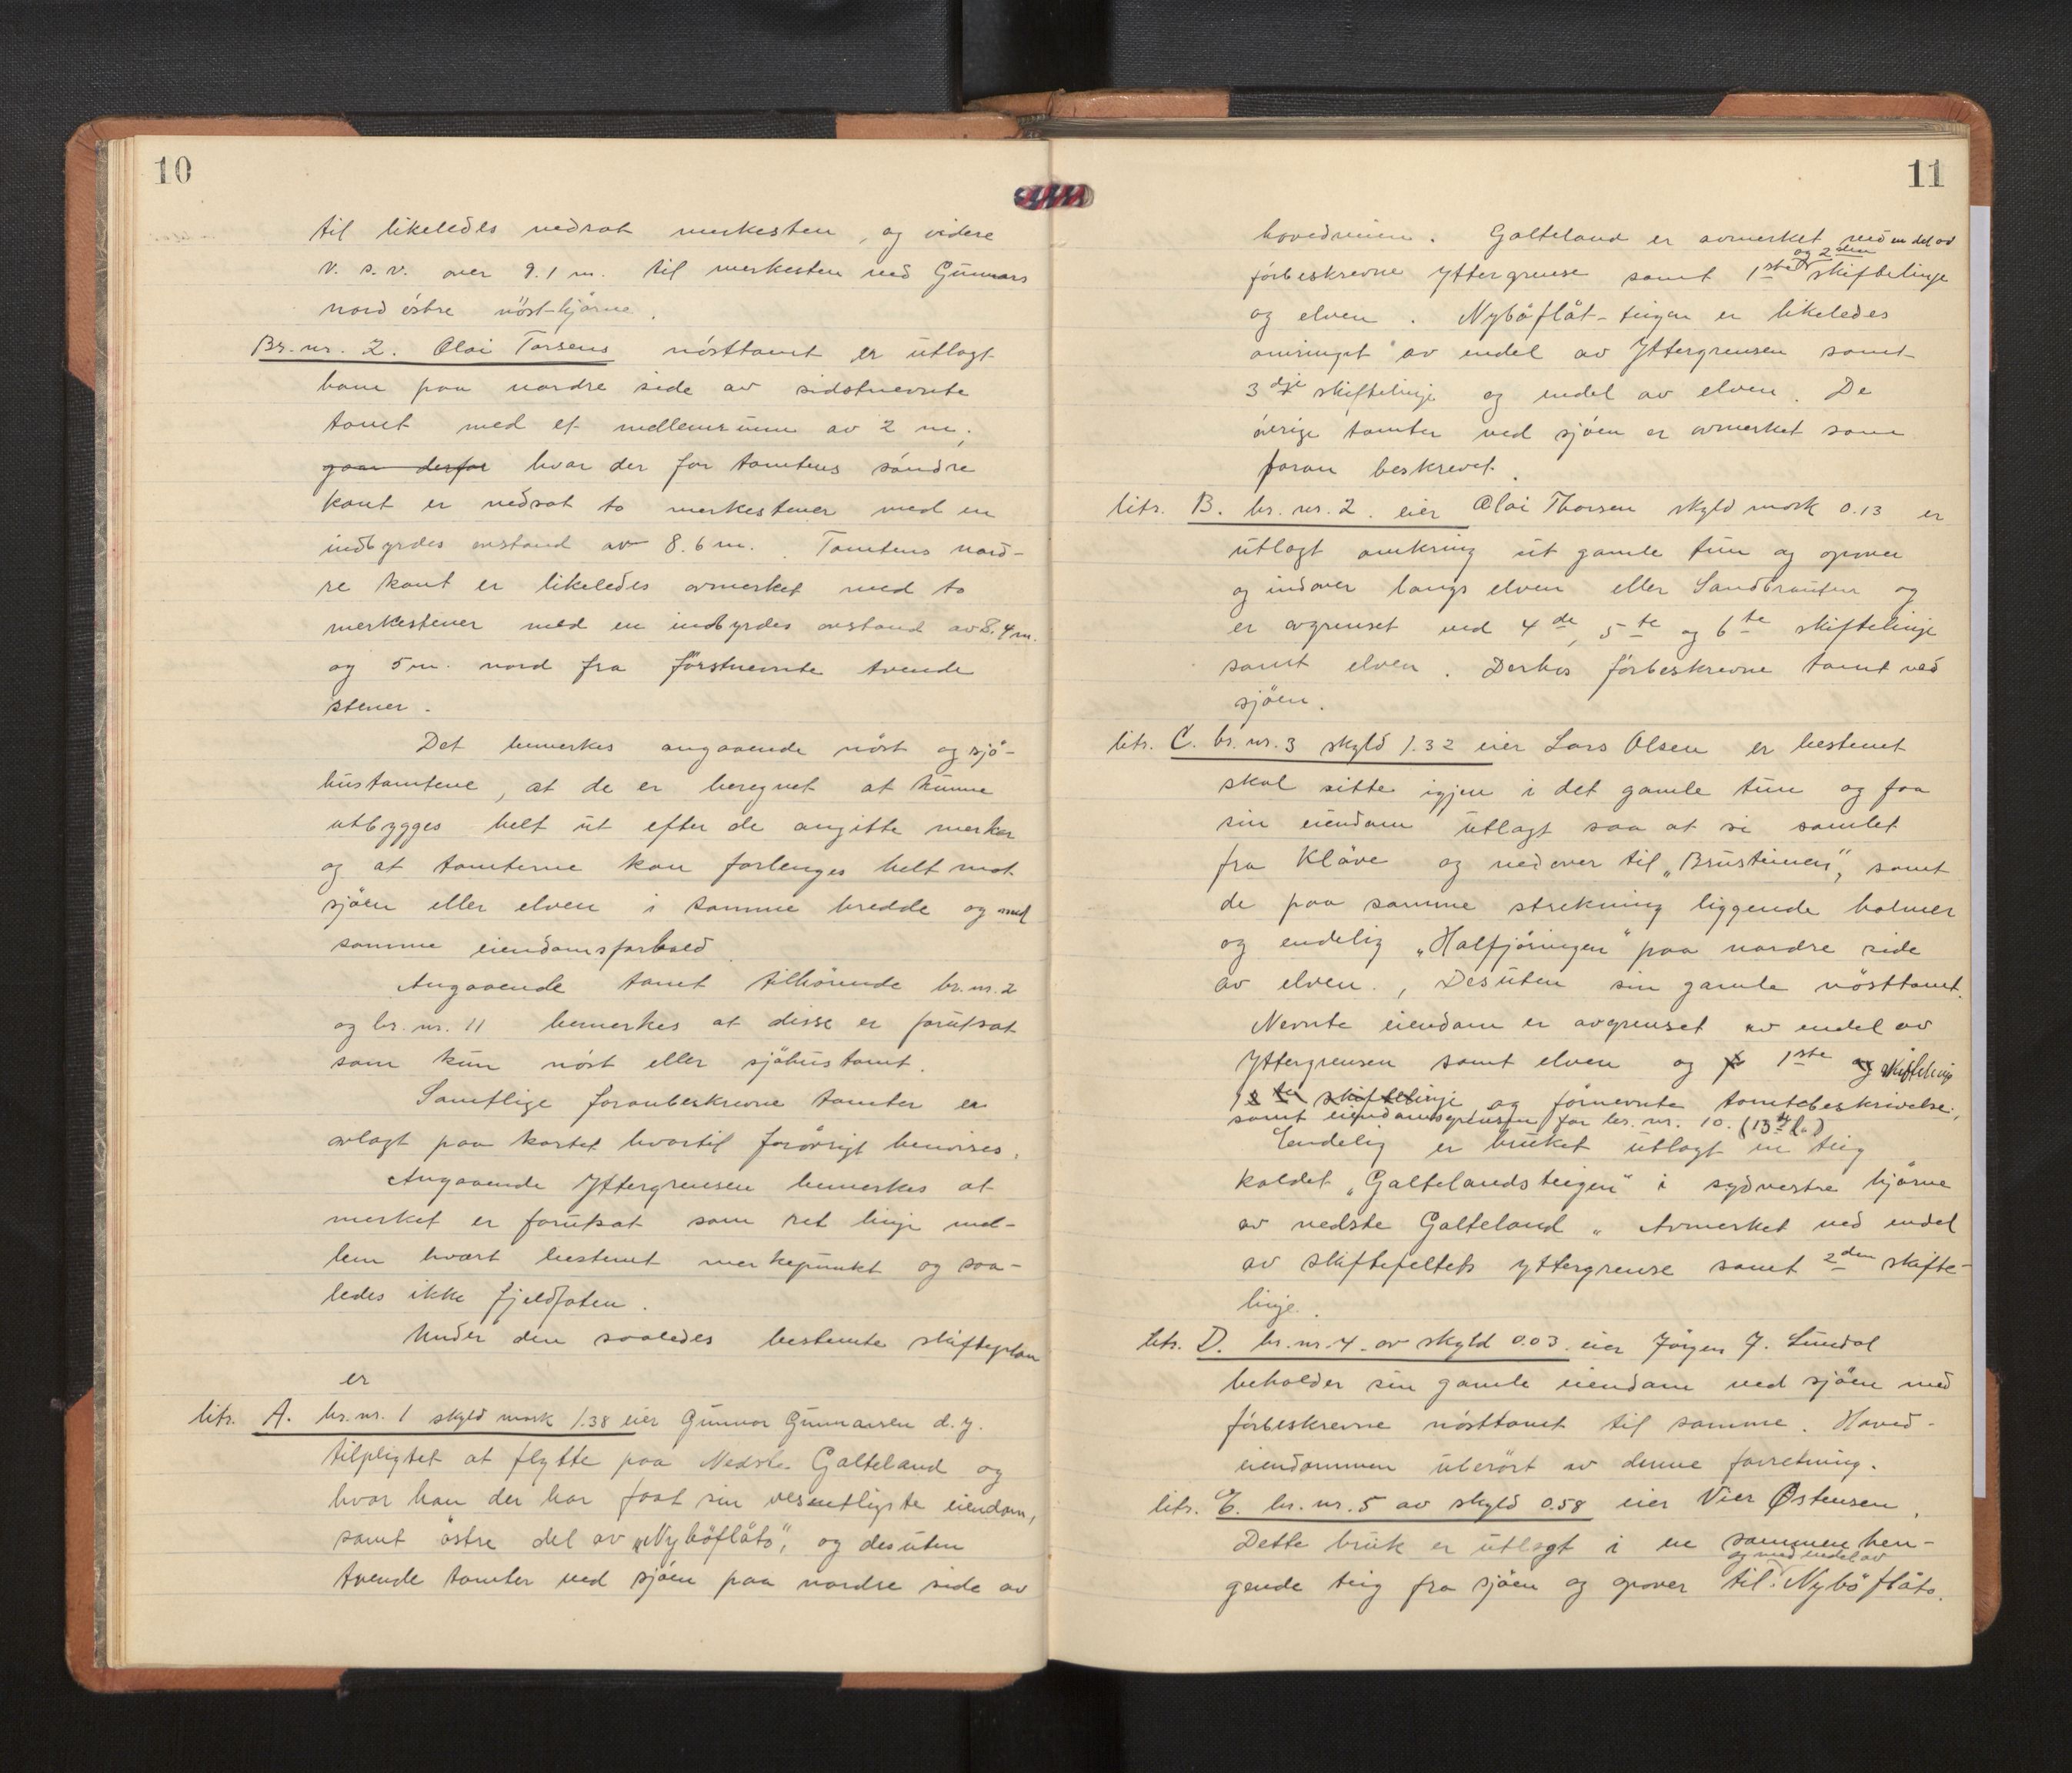 10
til likeledes nedsat merkesten, og videre
v. s. v. over 9.1 m. til merkesten ved Gunnars
nordöstre nöst-hjörne.
Br. nr. 2. Olai Torsens nösttomt er utlagt
ham paa nordre side av sidstnevnte
tomt med et mellemrum av 2 m.,
gaar derfor hvor der for tomtens söndre
kant er nedsat to merkestener med en
indbyrdes avstand av 8.6 m. Tomtens nord-
re kant er likeledes avmerket med to
merkestener med en indbyrdes avstand av 8.4 m.
og 5 m. nord fra förstnevnte tvende
stener.
Det bemerkes angaaende nöst og sjö-
hustomtene, at de er beregnet at kunne
utbygges helt ut efter de angitte merker
og at tomterne kan forlenges helt mot
sjöen eller elven i samme bredde og med
samme eiendomsforhold.
Angaaende tomt tilhörende br. nr. 2
og br. nr. 11 bemerkes at disse er forutsat
som kun nöst eller sjöhustomt.
Samtlige foranbeskrevne tomter er
avlagt paa kartet hvortil forövrigt henvises.
Angaaende Yttergrensen bemerkes at
merket er forutsat som ret linje mel-
lem hvært bestemt merkepunkt og saa-
ledes ikke fjeldfoten.
Under den saaledes bestemte skifteplan
er
litr. A. br. nr. 1 skyld mark 1.38 eier Gunnar Gunnarsen d. y.
tilpligtet at flytte paa Nedste Galteland og
hvor han der har faat sin vesentligste eiendom,
samt östre del av „Nyböflåto", og desuten
tvende tomter ved sjöen paa nordre side av
11
hovedveien. Galteland er avmerket ved en del av
og 2den
förbeskrevne Yttergrense samt 1ste skiftelinje
og elven. Nyböflåt-teigen er likeledes
omringet av endel av Yttergrensen samt
3dje skiftelinje og endel av elven. De
övrige tomter ved sjöen er avmerket som
foran beskrevet.
litr. B. br. nr. 2. eier Olai Thorsen skyld mark 0.13 er
utlagt omkring ut gamle tun og opover
og indover langs elven eller Sandbrauten og
er avgrenset ved 4de, 5te og 6te skiftelinje
samt elven. Derhos förbeskrevne tomt ved
sjöen.
litr. C. br. nr. 3 skyld 1.32 eier Lars Olsen er bestemt
skal sitte igjen i det gamle tun og faa
sin eiendom utlagt saa at si samlet
fra Klöve og nedover til „Brusteinen", samt
de paa samme strekning liggende holmer
og endelig „Halfjöringen" paa nordre side
av elven., Desuten sin gamle nösttomt.
Nevnte eiendom er avgrenset av endel av
Yttergrensen samt elven og 1ste og skiftelinje
skiftelinje og förnevnte tomtebeskrivelse,
samt eiendomsgrensen for br. nr. 10. (13de l.)
Endelig er bruket utlagt en teig
kaldet „Galtelandsteigen" i sydvestre hjörne
av nedste Galteland „ Avmerket ved endel
av skiftefeltets yttergrense samt 2den skifte-
linje.
litr. D. br. nr. 4. av skyld 0.03. eier Jörgen J. Lundal
beholder sin gamle eiendom ved sjöen med
förbeskrevne nösttomt til samme. Hoved-
eiendommen uberört av denne forretning.
litr. E. br. nr. 5 av skyld 0.58 eier Vier Østensen.
Dette bruk er utlagt i en sammenhen-
og med endel av
gende teig fra sjöen og opover til Nyböflåto.